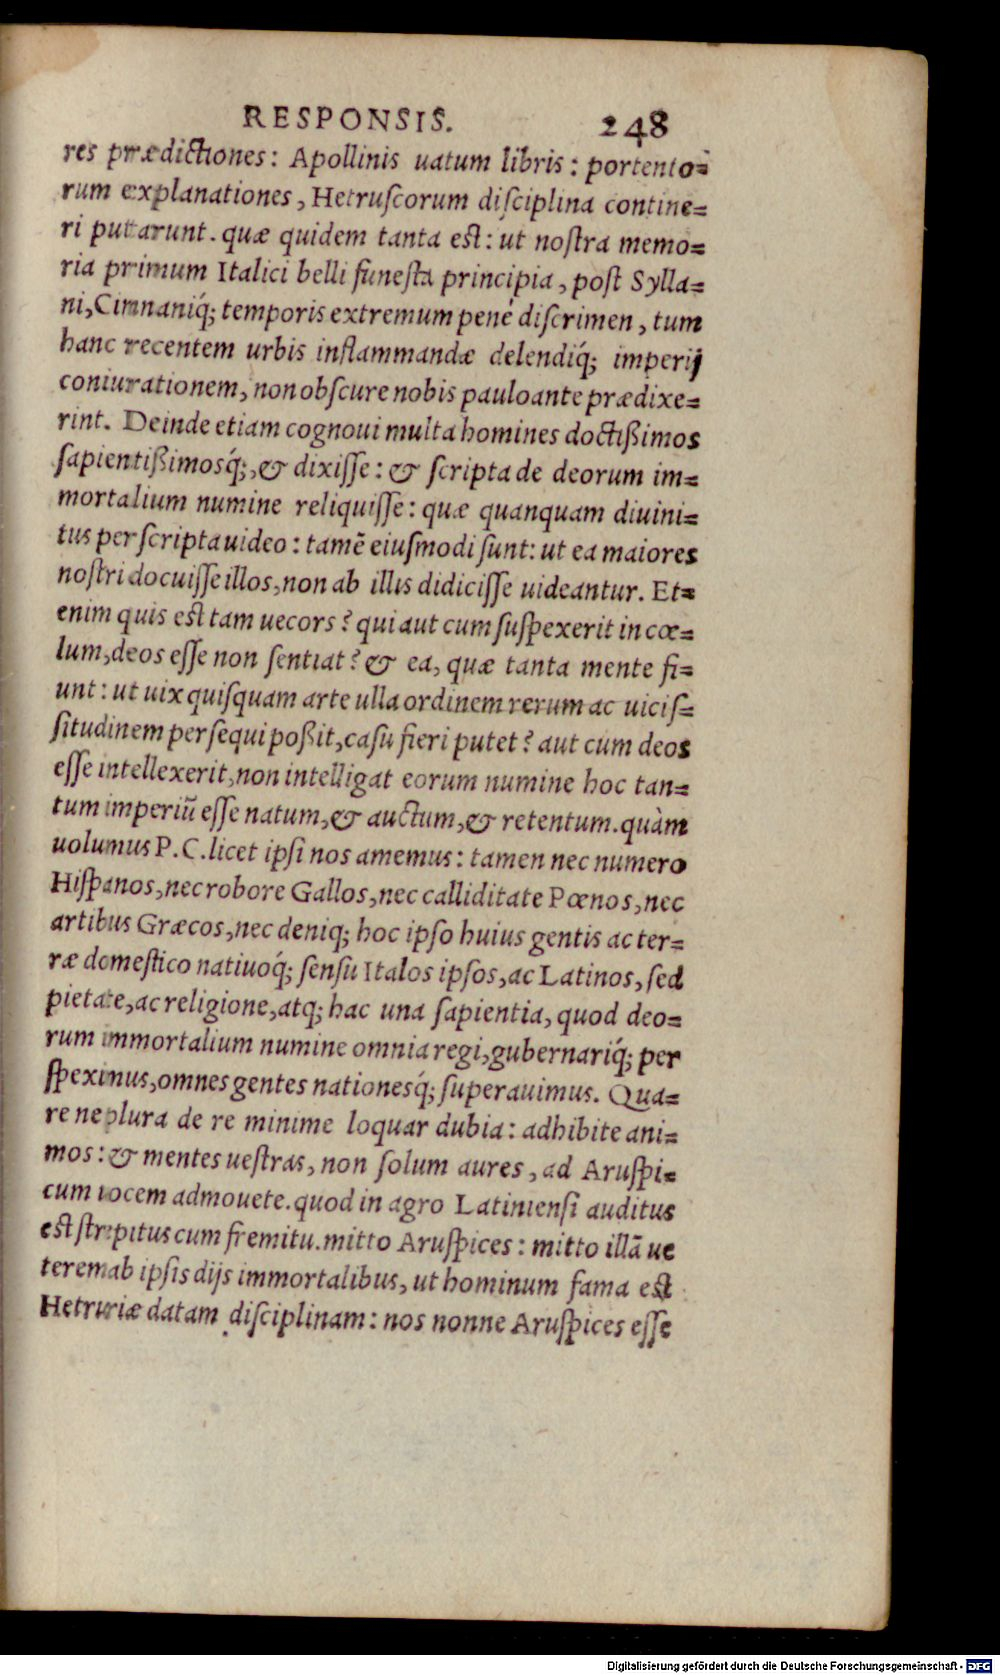 RESPONSIS. 248
res prædictiones: Apollinis uatum libris: portento=
rum explanationes, Hetruſcorum diſciplina contine=
ri putarunt. quæ quidem tanta est: ut noſtra memo=
ria primum Italici belli funeſta principia, poſt Sylla=
ni, Cinnaniq́; temporis extremum pene' diſcrimen, tum
hanc recentem urbis inflammandæ delendiq́; imperij
coniurationem, non obſcure nobis pauloante prædixe=
rint. Deinde etiam cognoui multa homines doctißimos
ſapientißimosq́;, & dixiſſe: & ſcripta de deorum im=
mortalium numine reliquiſſe: quæ quanquam diuini=
tus perſcripta uideo: tamē eiuſmodi ſunt: ut ea maiores
noſtri docuiſſe illos, non ab illis didiciſſe uideantur. Et=
enim quis est tam uecors? qui aut cum ſuſpexerit in cœ=
lum, deos eſſe non ſentiat? & ea, quæ tanta mente fi=
unt: ut uix quiſquam arte ulla ordinem rerum ac uiciſ=
ſitudinem perſequi poßit, caſu fieri putet? aut cum deos
eſſe intellexerit, non intelligat eorum numine hoc tan=
tum imperiū eſſe natum, & auctum, & retentum. quàm
uolumus P. C. licet ipſi nos amemus: tamen nec numero
Hiſpanos, nec robore Gallos, nec calliditate Pœnos, nec
artibus Græcos, nec deniq; hoc ipſo huius gentis ac ter=
ræ domeſtico natiuoq́; ſenſu Italos ipſos, ac Latinos, ſed
pietate, ac religione, atq; hac una ſapientia, quod deo=
rum immortalium numine omnia regi, gubernariq́; per
ſpeximus, omnes gentes nationesq́; ſuperauimus. Qua=
re ne plura de re minime loquar dubia: adhibite ani=
mos: & mentes ueſtras, non ſolum aures, ad Aruſpi=
cum uocem admouete. quod in agro Latinienſi auditus
est ſtrepitus cum fremitu. mitto Aruſpices: mitto illā ue
terem ab ipſis dijs immortalibus, ut hominum fama est
Hetruriæ datam diſciplinam: nos nonne Aruſpices eſſe
Digitalisierung gefördert durch die Deutsche Forschungsgemeinschaft - DFG